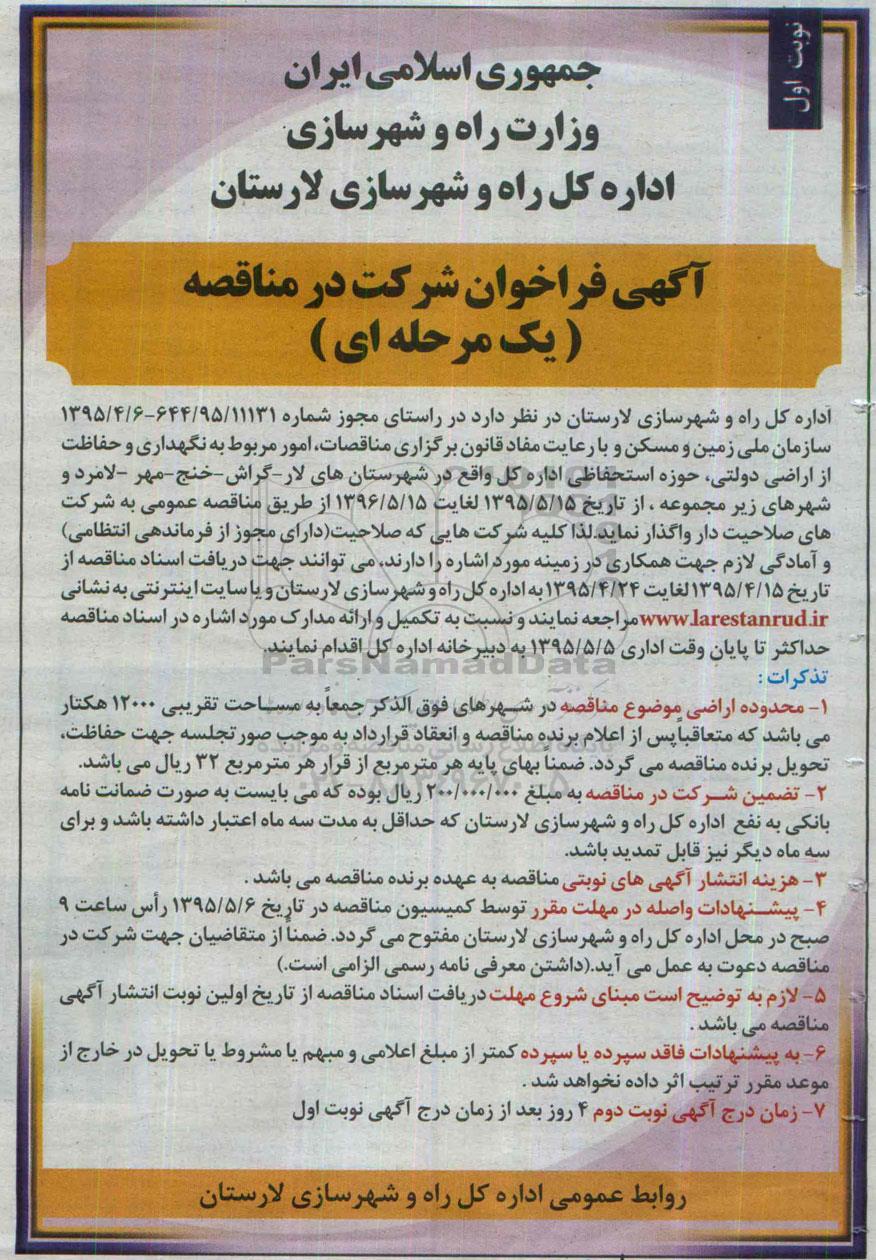 نوبت اول
جمهوری اسلامی ایران
وزارت راه و شهرسازی
اداره کل راه و شهرسازی لارستان
آگهی فراخوان شرکت در مناقصه
( یک مرحله ای )
اداره کل راه و شهرسازی لارستان در نظر دارد در راستای مجوز شماره ۶۴۴/۹۵/۱۱۱۳۱-۱۳۹۵/۴/۶
سازمان ملی زمین و مسکن و با رعایت مفاد قانون برگزاری مناقصات، امور مربوط به نگهداری و حفاظت
از اراضی دولتی، حوزه استحفاظی اداره کل واقع در شهرستان های لار-گراش-خنج-مهر -لامرد و
شهرهای زیر مجموعه ، از تاریخ ۱۳۹۵/۵/۱۵ لغایت ۱۳۹۶/۵/۱۵ از طریق مناقصه عمومی به شرکت
های صلاحیت دار واگذار نماید.لذا کلیه شرکت هایی که صلاحیت(دارای مجوز از فرماندهی انتظامی)
و آمادگی لازم جهت همکاری در زمینه مورد اشاره را دارند، می توانند جهت دریافت اسناد مناقصه از
تاریخ ۱۳۹۵/۴/۱۵ لغایت ۱۳۹۵/۴/۲۴ به اداره کل راه و شهرسازی لارستان و یا سایت اینترنتی به نشانی
www.larestanrud.ir مراجعه نمایند و نسبت به تکمیل و ارائه مدارک مورد اشاره در اسناد مناقصه
حداکثر تا پایان وقت اداری ۱۳۹۵/۵/۵ به دبیرخانه اداره کل اقدام نمایند.
ParsNamadData
تذکرات :
۱- محدوده اراضی موضوع مناقصه در شهرهای فوق الذکر جمعاً به مساحت تقریبی ۱۲۰۰۰ هکتار
می باشد که متعاقباً پس از اعلام برنده مناقصه و انعقاد قرارداد به موجب صورتجلسه جهت حفاظت،
تحویل برنده مناقصه می گردد. ضمنا بهای پایه هر مترمربع از قرار هر مترمربع ۳۲ ریال می باشد.
۲- تضمین شرکت در مناقصه به مبلغ ۲۰۰/۰۰۰/۰۰۰ ریال بوده که می بایست به صورت ضمانت نامه
بانکی به نفع اداره کل راه و شهرسازی لارستان که حداقل به مدت سه ماه اعتبار داشته باشد و برای
سه ماه دیگر نیز قابل تمدید باشد.
۳- هزینه انتشار آگهی های نوبتی مناقصه به عهده برنده مناقصه می باشد .
۴- پیشنهادات واصله در مهلت مقرر توسط کمیسیون مناقصه در تاریخ ۱۳۹۵/۵/۶ رأس ساعت ۹
صبح در محل اداره کل راه و شهرسازی لارستان مفتوح می گردد. ضمناً از متقاضیان جهت شرکت در
مناقصه دعوت به عمل می آید.(داشتن معرفی نامه رسمی الزامی است.)
۵- لازم به توضیح است مبنای شروع مهلت دریافت اسناد مناقصه از تاریخ اولین نوبت انتشار آگهی
مناقصه می باشد .
۶- به پیشنهادات فاقد سپرده یا سپرده کمتر از مبلغ اعلامی و مبهم یا مشروط یا تحویل در خارج از
موعد مقرر ترتیب اثر داده نخواهد شد .
۷- زمان درج آگهی نوبت دوم ۴ روز بعد از زمان درج آگهی نوبت اول
روابط عمومی اداره کل راه و شهرسازی لارستان